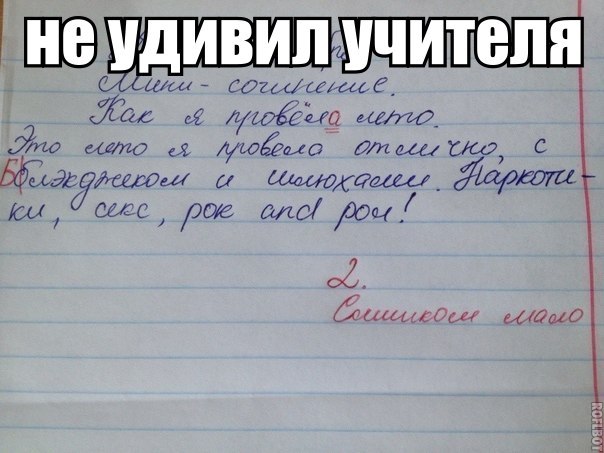 не удивил учителя
Мини-сочинение.
Как я провёла лето.
Это лето я провела отлично, с
Бблэкджеком и шлюхами. Наркоти-
ки, секс, рок and рол!
2.
Слишком мало
ROFLBOT